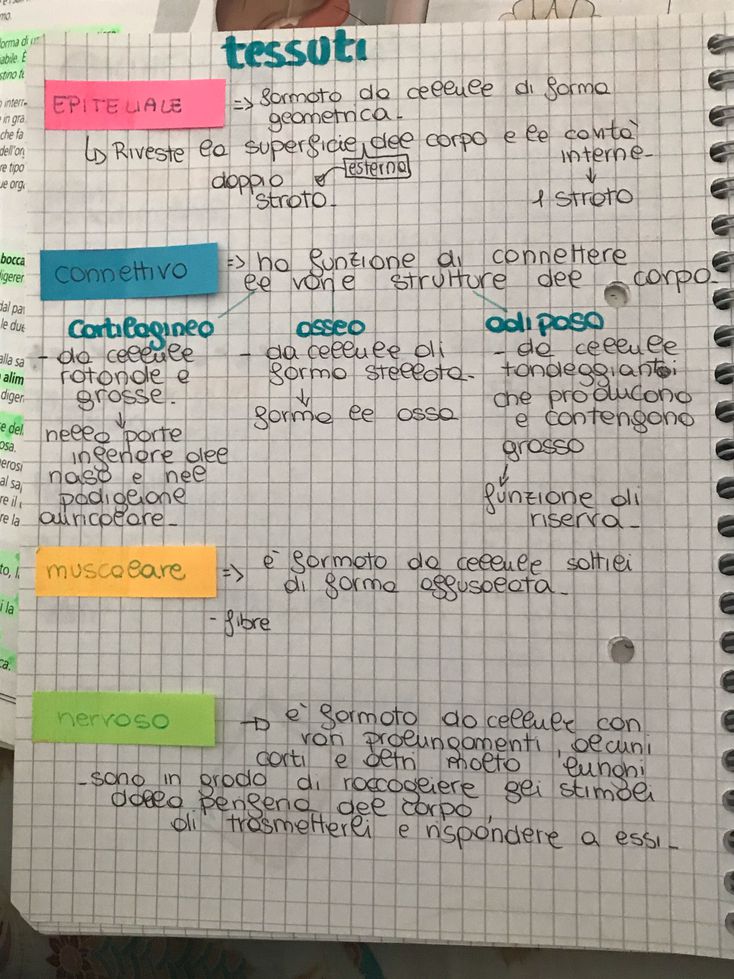 tessuti
EPITELIALE => formato da cellule di forma
geometrica.
↳ Riveste la superficie del corpo e le cavità
esterno
interne.
doppio
strato.
1 strato
connettivo => ha funzione di connettere
le varie strutture del corpo.
cartilagineo
- da cellule
rotonde e
grosse.
nella parte
inferiore del
naso e nel
padiglione
auricolare.
osseo
- da cellule di
forma stellata.
forma le ossa
adiposo
- da cellule
tondeggianti
che producono
e contengono
grasso
funzione di
riserva.
muscolare => è formato da cellule sottili
di forma affusolata.
- fibre
nervoso → è formato da cellule con
vari prolungamenti, alcuni
corti e altri molto lunghi
- sono in grado di raccogliere gli stimoli
dalla periferia del corpo,
di trasmetterli e rispondere a essi.
bocca